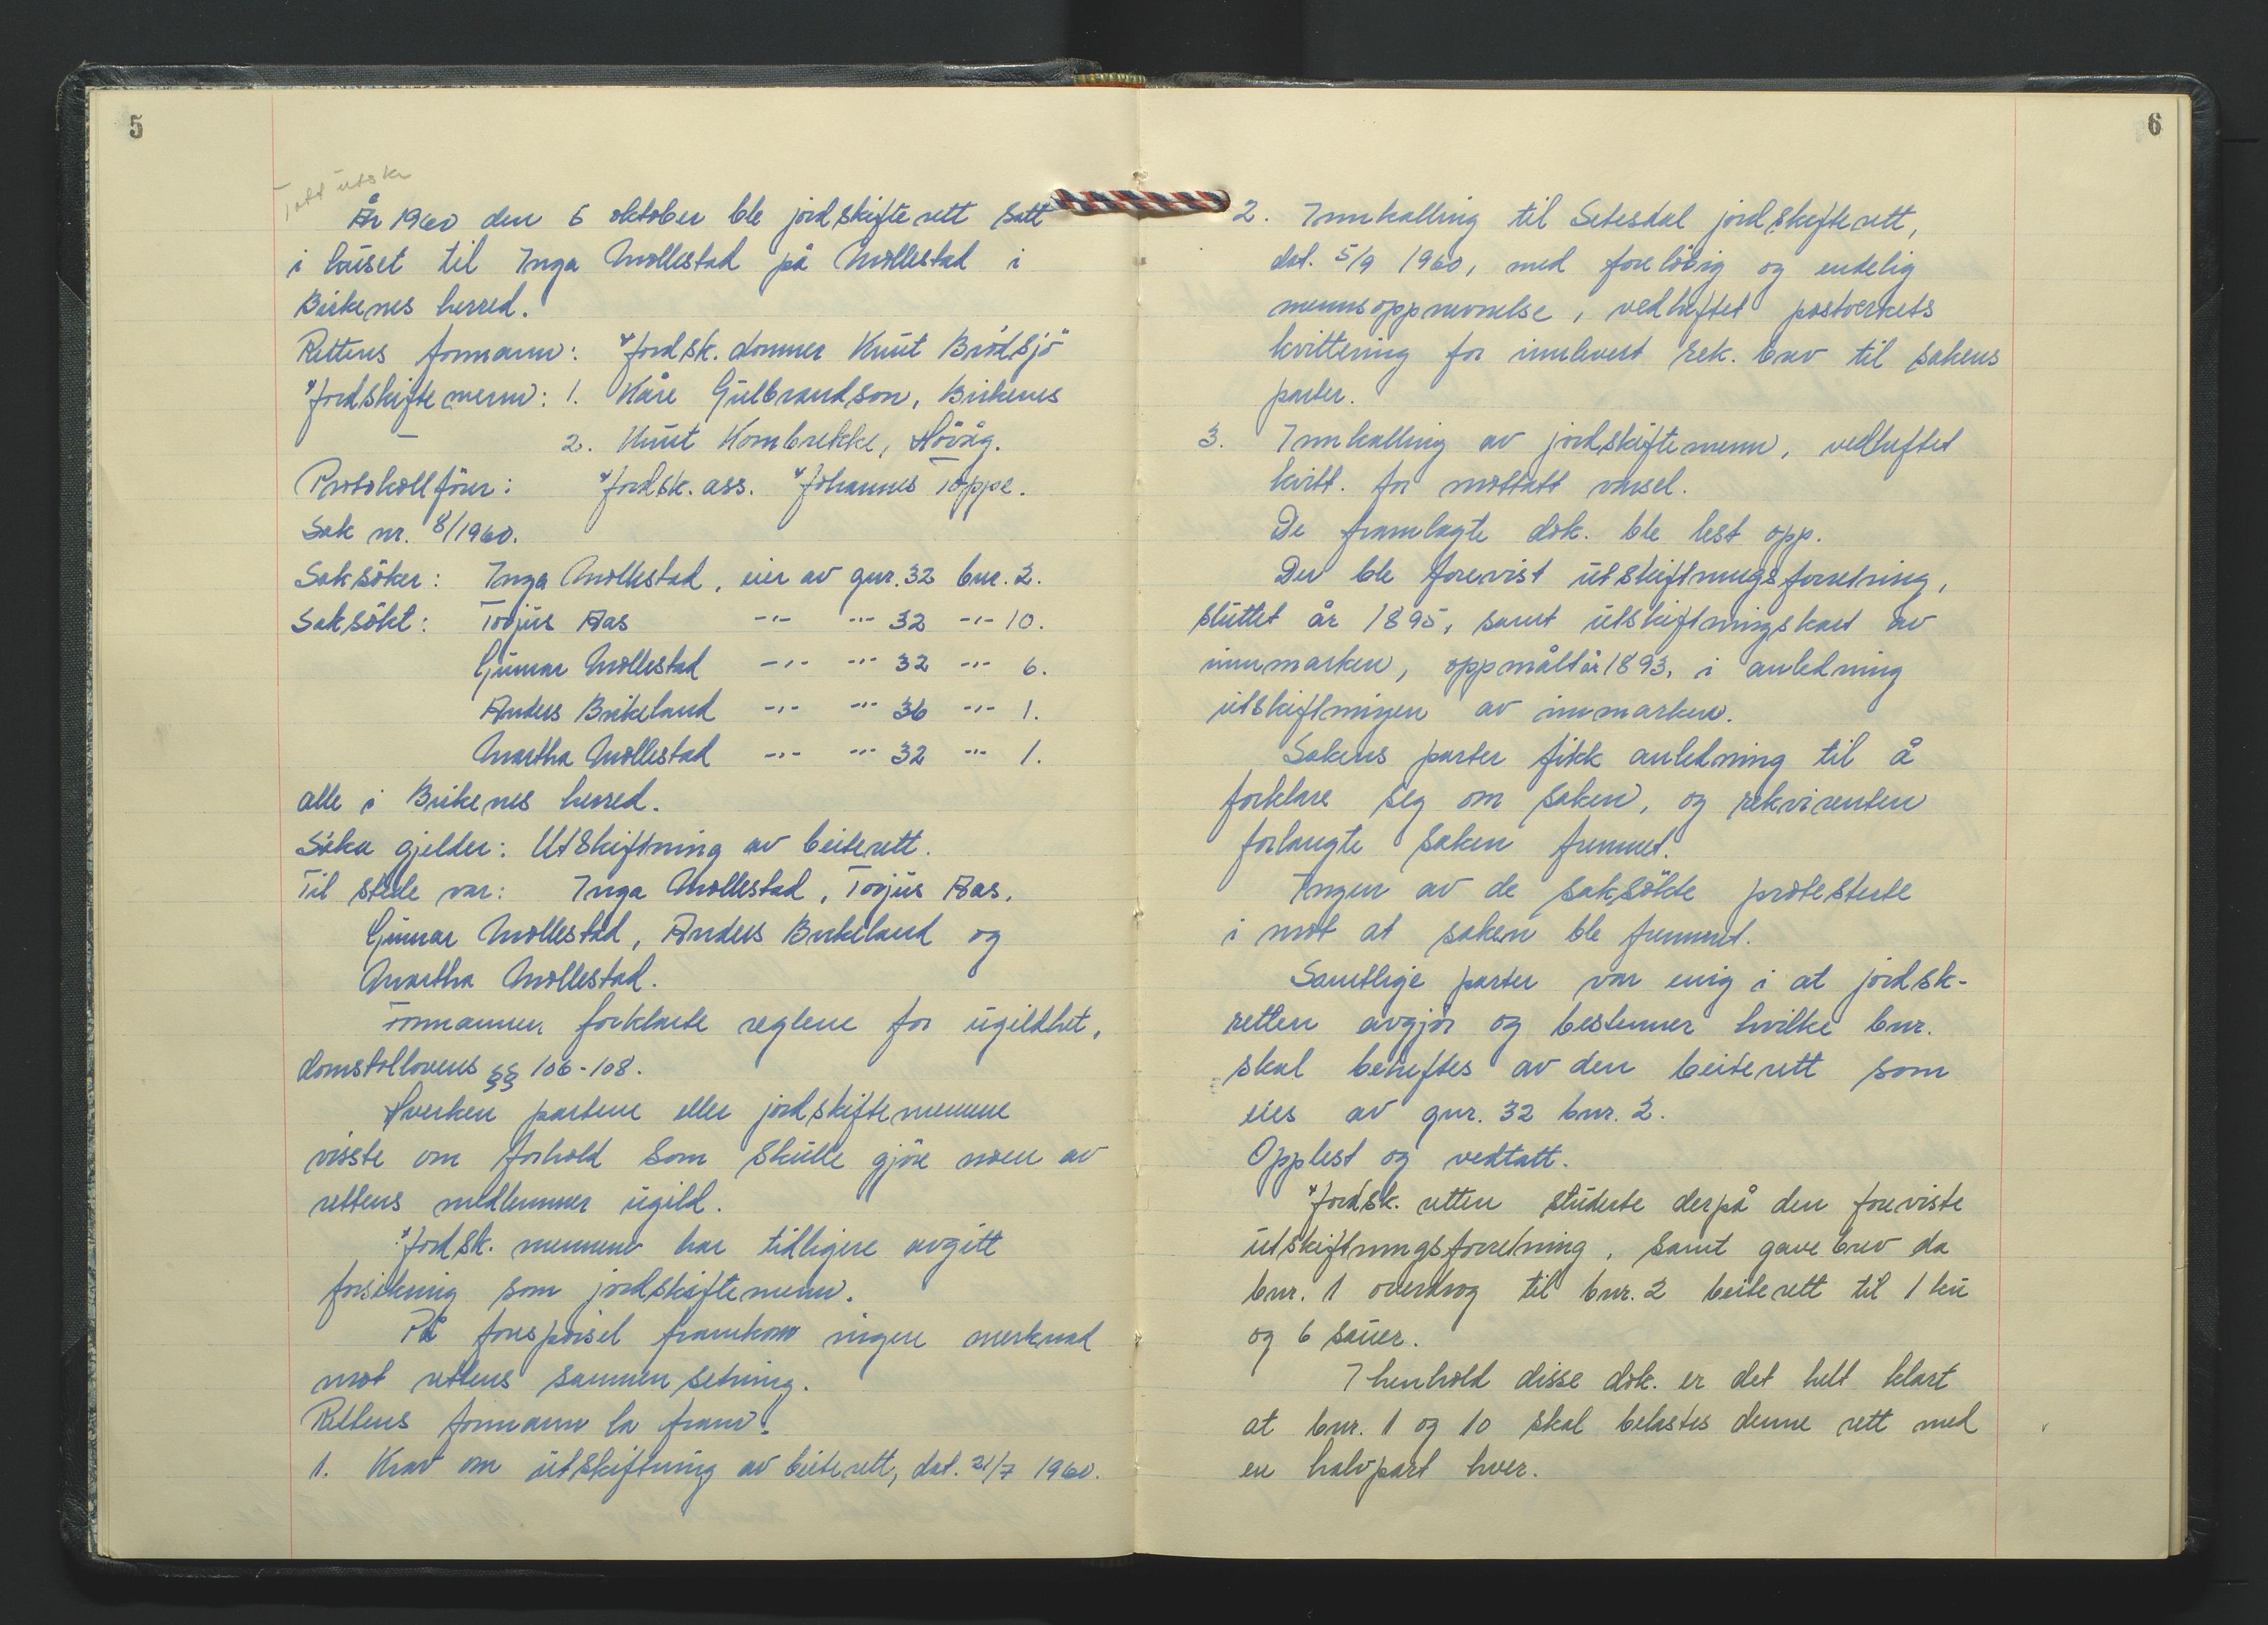 5
Tatt utskr
År 1960 den 6 oktober ble jordskifterett satt
i huset til Inga Mollestad på Mollestad i
Birkenes herred.
Rettens formann: Jordsk. dommer Knut Brödsjö
Jordskiftemenn: 1. Kåre Gulbrandson, Birkenes
— 2. Knut Kombrekke, Høvåg.
Protokollförer: Jordsk. ass. Johannes Toppe.
Sak nr. 8/1960.
Saksöker: Inga Mollestad, eier av gnr. 32 bnr. 2.
Saksökt: Torjus Aas -"- -"- 32 -"- 10.
Gunnar Mollestad -"- -"- 32 -"- 6.
Anders Birkeland -"- -"- 36 -"- 1.
Martha Mollestad -"- -"- 32 -"- 1.
alle i Birkenes herred.
Saka gjelder: Utskiftning av beiterett.
Til stede var: Inga Mollestad, Torjus Aas,
Gunnar Mollestad, Anders Birkeland og
Martha Mollestad.
Formannen forklarte reglene for ugildhet,
domstollovens §§ 106-108.
Hverken partene eller jordskiftemennene
visste om forhold som skulle gjöre noen av
rettens medlemmer ugild.
Jordsk. mennene har tidligere avgitt
forsikring som jordskiftemenn.
På forespörsel framkom ingen merknad
mot rettens sammensetning.
Rettens formann la fram:
1. Krav om utskiftning av beiterett, dat. 21/7 1960.
6
2. Innkalling til Setesdal jordskifterett,
dat. 5/9 1960, med forelöbig og endelig
mennsoppnevnelse, vedheftet postverkets
kvittering for innlevert rek. brev til sakens
parter.
3. Innkalling av jordskiftemenn, vedheftet
kvitt. for mottatt varsel.
De framlagte dok. ble lest opp.
Der ble forevist utskiftningsforretning,
sluttet år 1895, samt utskiftningskart av
innmarken, oppmålt år 1893, i anledning
utskiftningen av innmarken.
Sakens parter fikk anledning til å
forklare seg om saken, og rekvirenten
forlangte saken fremmet.
Ingen av de saksökte protesterte
i mot at saken ble fremmet.
Samtlige parter var enig i at jordsk-
retten avgjör og bestemmer hvilke bnr.
skal beheftes av den beiterett som
eies av gnr. 32 bnr. 2.
Opplest og vedtatt.
Jordsk. retten studerte derpå den foreviste
utskiftningsforretning, samt gavebrev da
bnr. 1 overdrog til bnr. 2 beiterett til 1 ku
og 6 sauer.
I henhold disse dok. er det helt klart
at bnr. 1 og 10 skal belastes denne rett med
en halvpart hver.